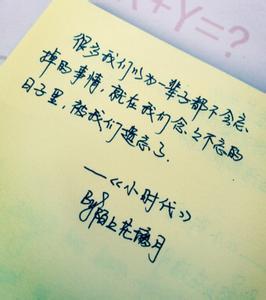 X+Y=?
很多我们以为一辈子都不会忘
掉的事情，就在我们念念不忘的
日子里，被我们遗忘了.
——《小时代》
By陌上花离月